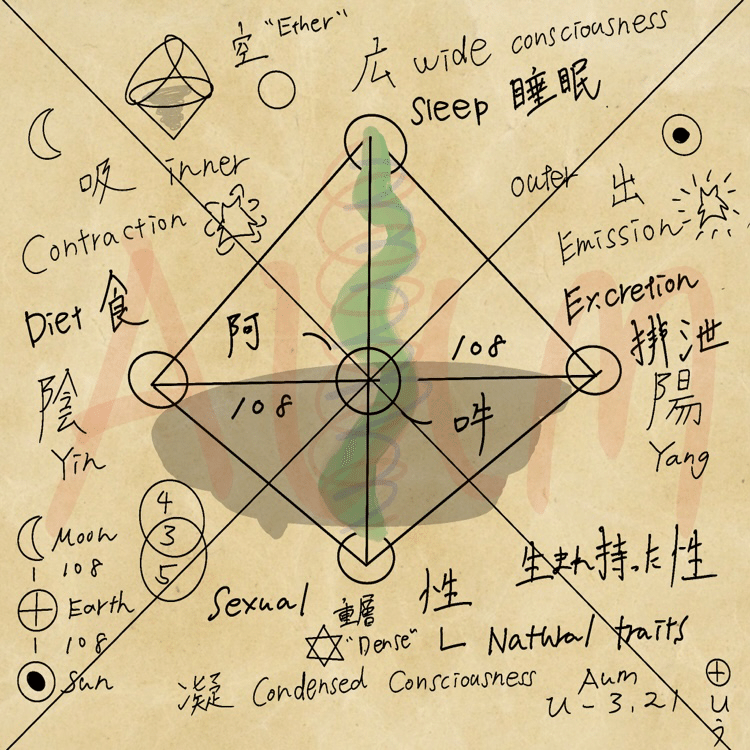 空 "Ether"
広 wide consciousness
Sleep 睡眠
吸 inner
outer 出
Contraction
Emission
Diet 食
Excretion
排泄
阿
108
108
吽
陰
Yin
陽
Yang
Aum
4
3
5
Moon
108
Earth
108
Sun
Sexual
重層
"Dense"
性
生まれ持った性
Natural traits
凝 Condensed Consciousness
Aum
U-3,21
う